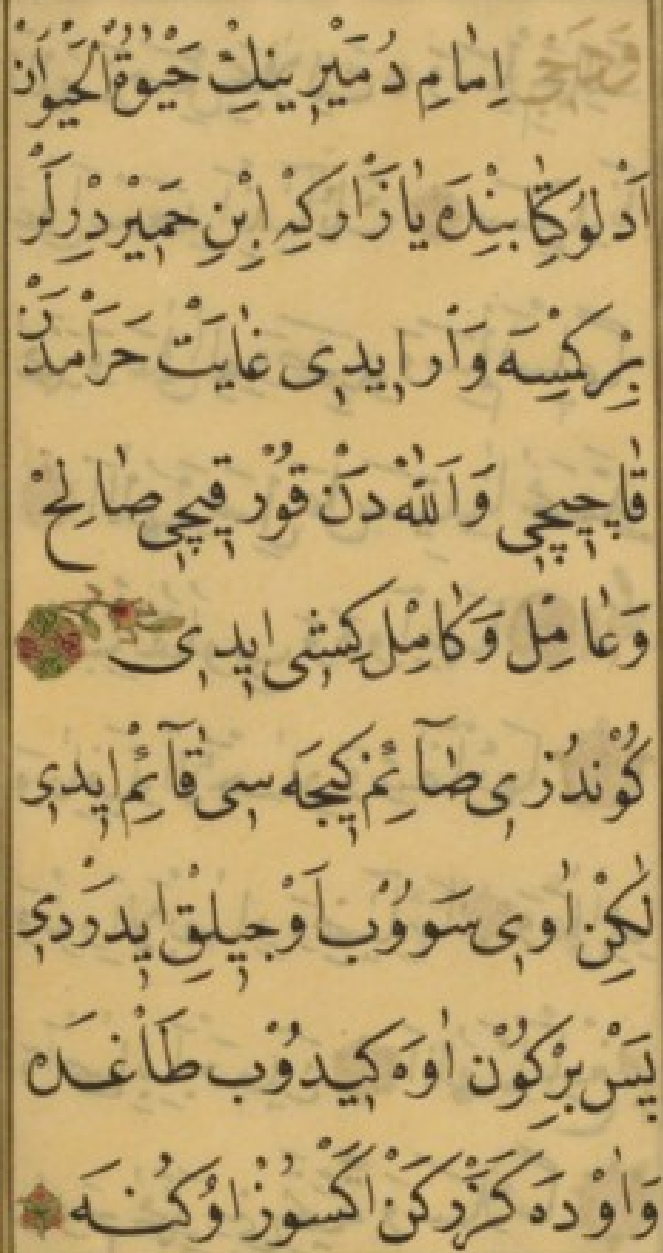 وَدَخٖى اِمَامِ دُمَيْرٖينِكْ حَيٰوةُ الْحَيْوَانْ
اَدْلُو كِتَابِنْدَه يَازَارْ كِهْ اِبْنِ حِمْيَرْ دٖرْلَرْ
بِرْ كِمْسَه وَارْ اٖيدٖى غَايَتْ حَرَامْدَنْ
قَاچٖيجٖى وَاللّٰهْ دَنْ قُورْقٖيجٖى صَالِحْ
وَعَامِلْ وَكَامِلْ كِشٖى اٖيدٖى
كُونْدُزٖى صَآئِمْ كٖيجَه سٖى قَآئِمْ اٖيدٖى
لٰكِنْ اَوٖى سَوُوْبْ اَوْجٖيلِقْ اٖيدَرْدٖى
پَسْ بِرْ كُونْ اَوَه كٖيدُوبْ طَاغْدَه
وَاَوْدَه كَزَرْكَنْ اَكْسُوزْ اُوكُنَه